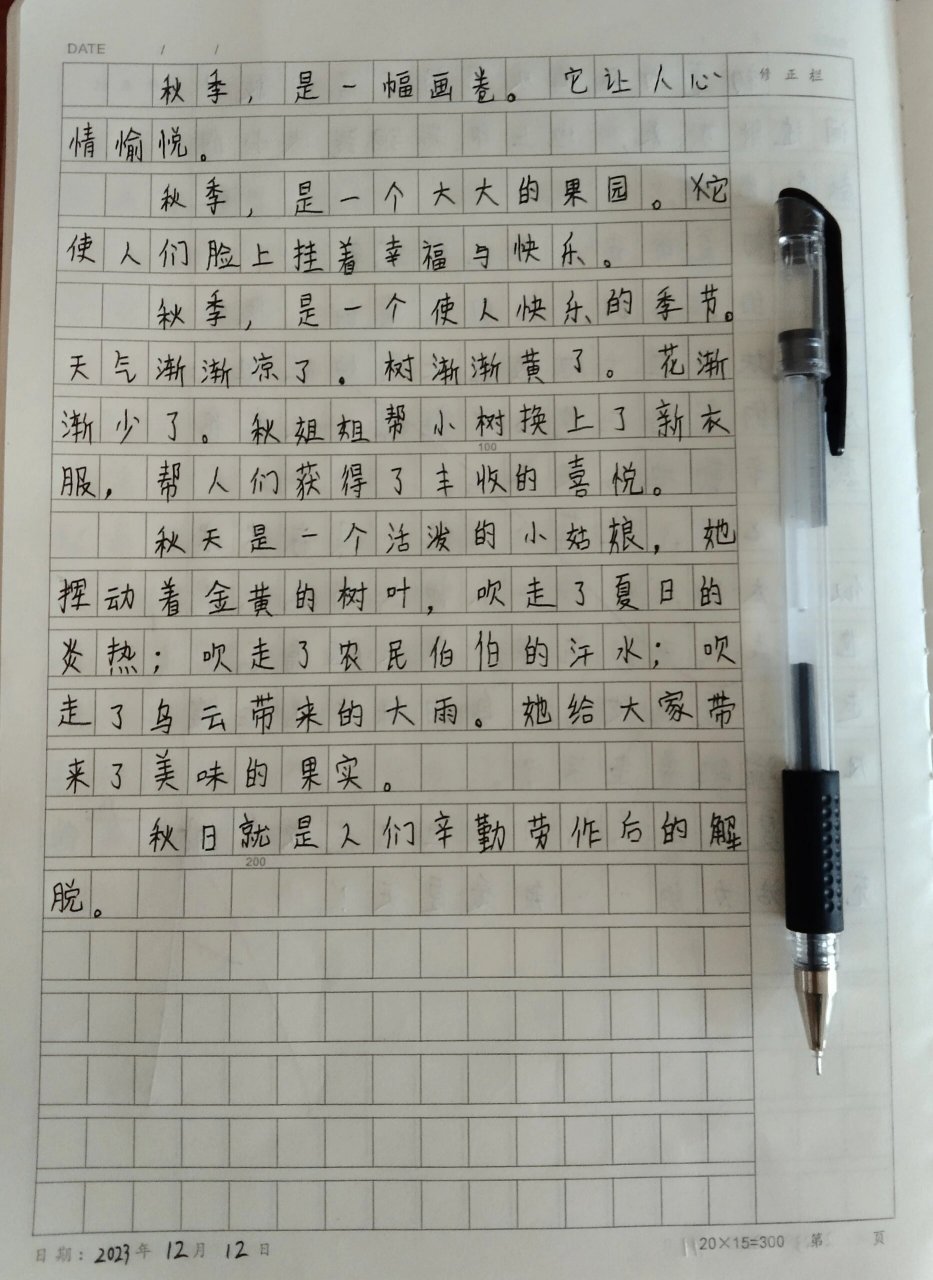 DATE / /
修正栏
秋季，是一幅画卷。它让人心
情愉悦。
秋季，是一个大大的果园。它
使人们脸上挂着幸福与快乐。
秋季，是一个使人快乐的季节。
天气渐渐凉了．树渐渐黄了。花渐
渐少了。秋姐姐帮小树换上了新衣
100
服，帮人们获得了丰收的喜悦。
秋天是一个活泼的小姑娘，她
挥动着金黄的树叶，吹走了夏日的
炎热；吹走了农民伯伯的汗水；吹
走了乌云带来的大雨。她给大家带
来了美味的果实。
秋日就是人们辛勤劳作后的解
200
脱。
日期：2023年12月12日
20×15=300 第 页